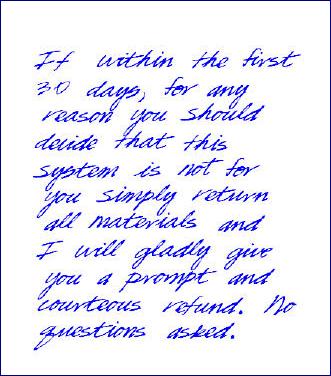 If within the first
30 days, for any
reason you should
decide that this
system is not for
you simply return
all materials and
I will gladly give
you a prompt and
courteous refund. No
questions asked.